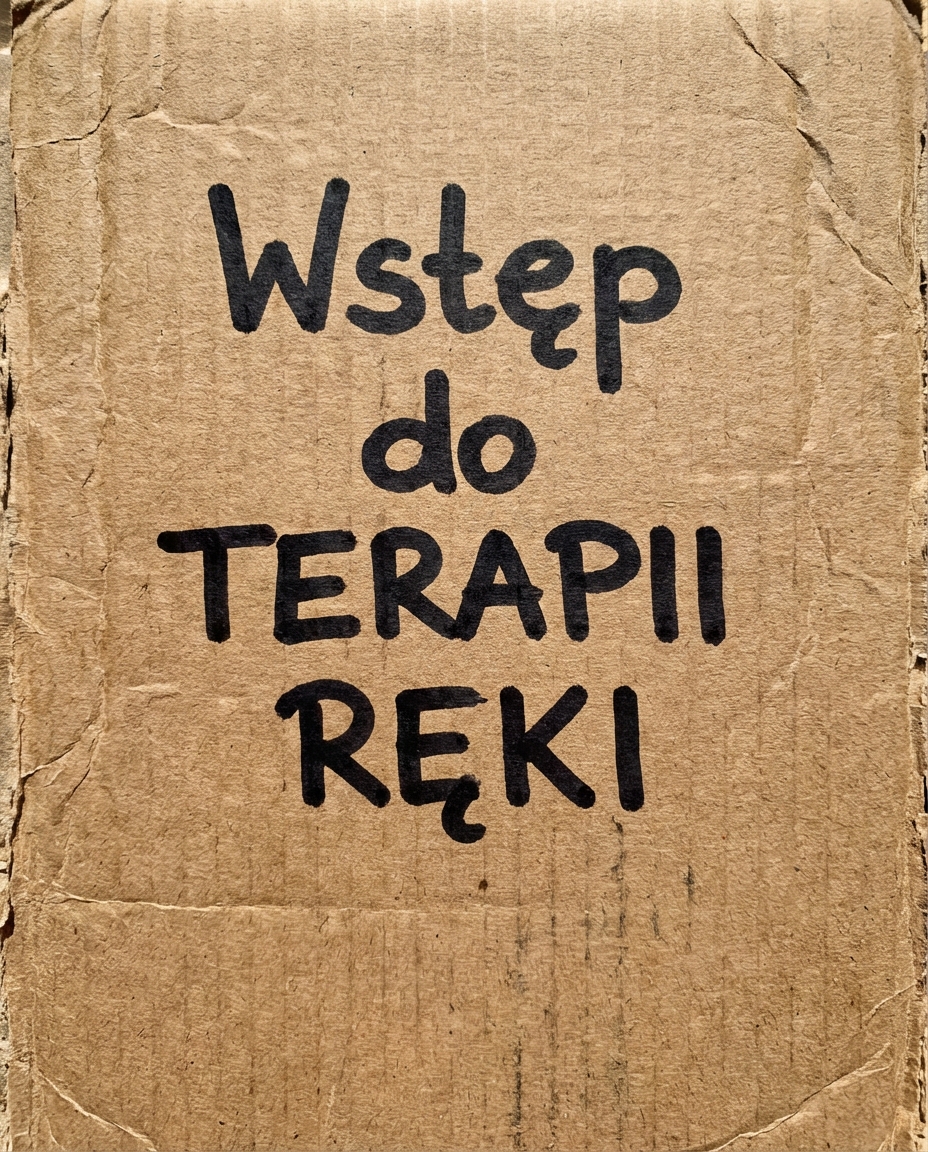 Wstęp
do
TERAPII
RĘKI